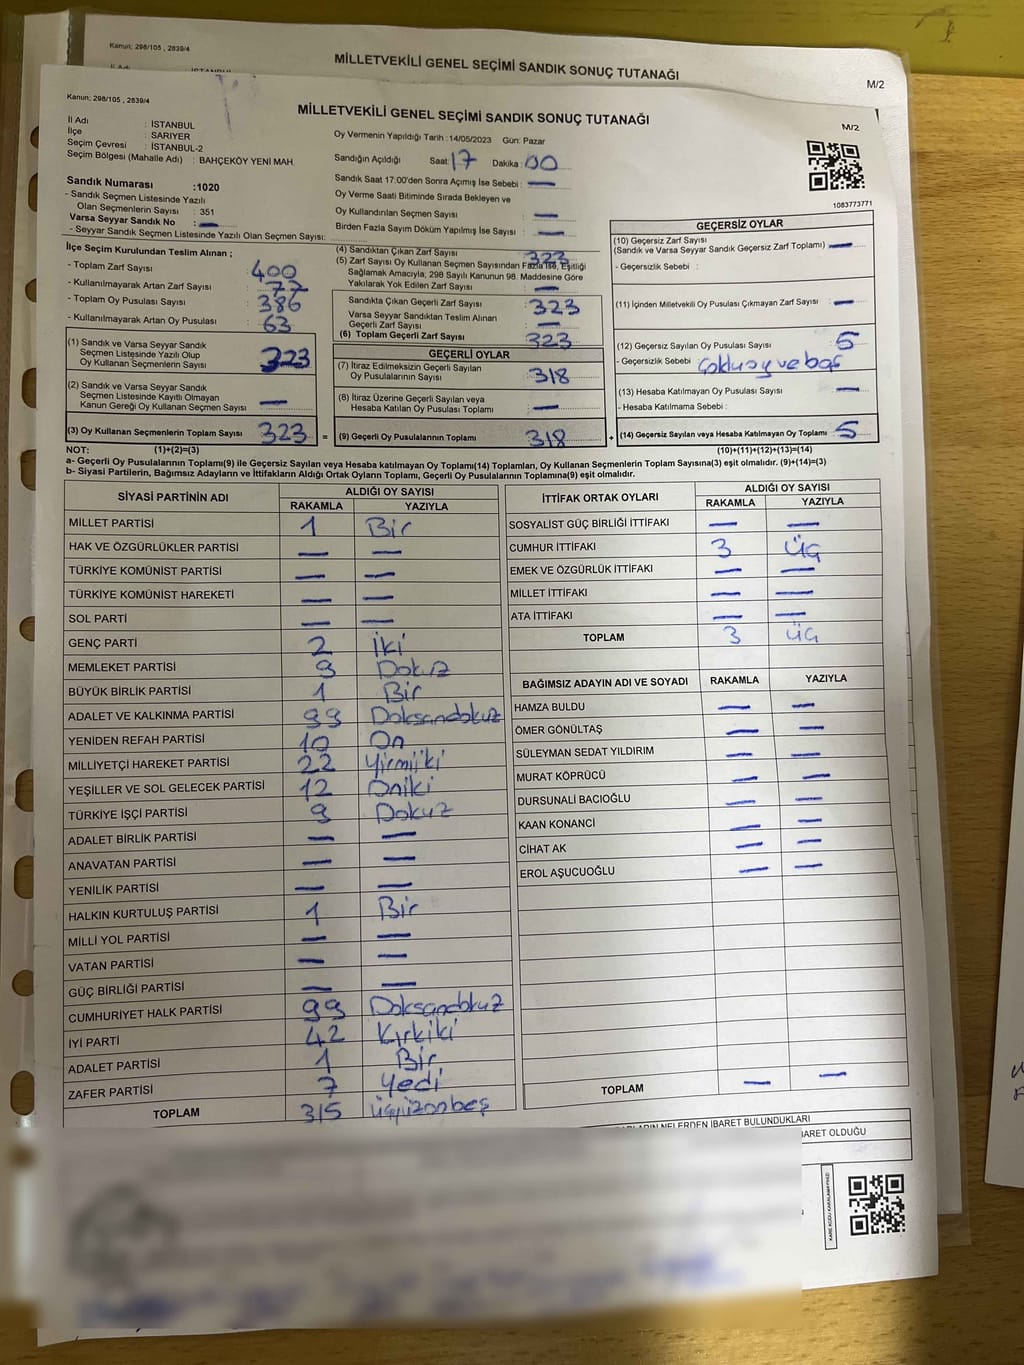 Kanun; 298/105 , 2839/4
MİLLETVEKİLİ GENEL SEÇİMİ SANDIK SONUÇ TUTANAĞI
M/2
Kanun; 298/105 , 2839/4
MİLLETVEKİLİ GENEL SEÇİMİ SANDIK SONUÇ TUTANAĞI
M/2
İl Adı : İSTANBUL
İlçe : SARIYER
Seçim Çevresi : İSTANBUL-2
Seçim Bölgesi (Mahalle Adı) : BAHÇEKÖY YENİ MAH.
Sandık Numarası :1020
- Sandık Seçmen Listesinde Yazılı
Olan Seçmenlerin Sayısı : 351
Varsa Seyyar Sandık No : —
- Seyyar Sandık Seçmen Listesinde Yazılı Olan Seçmen Sayısı:
Oy Vermenin Yapıldığı Tarih :14/05/2023 Gün: Pazar
Sandığın Açıldığı Saat: 17 Dakika : 00
Sandık Saat 17:00'den Sonra Açımış İse Sebebi : —
Oy Verme Saati Bitiminde Sırada Bekleyen ve
Oy Kullandırılan Seçmen Sayısı : —
Birden Fazla Sayım Döküm Yapılmış İse Sayısı : —
1083773771
İlçe Seçim Kurulundan Teslim Alınan ;
- Toplam Zarf Sayısı : 400
- Kullanılmayarak Artan Zarf Sayısı : 77
- Toplam Oy Pusulası Sayısı : 386
- Kullanılmayarak Artan Oy Pusulası : 63
(1) Sandık ve Varsa Seyyar Sandık
Seçmen Listesinde Yazılı Olup
Oy Kullanan Seçmenlerin Sayısı : 323
(2) Sandık ve Varsa Seyyar Sandık
Seçmen Listesinde Kayıtlı Olmayan
Kanun Gereği Oy Kullanan Seçmen Sayısı : —
(3) Oy Kullanan Seçmenlerin Toplam Sayısı : 323 =
(4) Sandıktan Çıkan Zarf Sayısı : 323
(5) Zarf Sayısı Oy Kullanan Seçmen Sayısından Fazla İse, Eşitliği
Sağlamak Amacıyla, 298 Sayılı Kanunun 98. Maddesine Göre
Yakılarak Yok Edilen Zarf Sayısı : —
Sandıkta Çıkan Geçerli Zarf Sayısı : 323
Varsa Seyyar Sandıktan Teslim Alınan
Geçerli Zarf Sayısı : —
(6) Toplam Geçerli Zarf Sayısı : 323
GEÇERLİ OYLAR
(7) İtiraz Edilmeksizin Geçerli Sayılan
Oy Pusulalarının Sayısı : 318
(8) İtiraz Üzerine Geçerli Sayılan veya
Hesaba Katılan Oy Pusulası Toplamı : —
(9) Geçerli Oy Pusulalarının Toplamı : 318 +
GEÇERSİZ OYLAR
(10) Geçersiz Zarf Sayısı
(Sandık ve Varsa Seyyar Sandık Geçersiz Zarf Toplamı) : —
- Geçersizlik Sebebi :
(11) İçinden Milletvekili Oy Pusulası Çıkmayan Zarf Sayısı : —
(12) Geçersiz Sayılan Oy Pusulası Sayısı : 5
- Geçersizlik Sebebi : Çoklu oy ve boş
(13) Hesaba Katılmayan Oy Pusulası Sayısı : —
- Hesaba Katılmama Sebebi :
(14) Geçersiz Sayılan veya Hesaba Katılmayan Oy Toplamı : 5
NOT: (1)+(2)=(3) (10)+(11)+(12)+(13)=(14)
a- Geçerli Oy Pusulalarının Toplamı(9) ile Geçersiz Sayılan veya Hesaba katılmayan Oy Toplamı(14) Toplamları, Oy Kullanan Seçmenlerin Toplam Sayısına(3) eşit olmalıdır. (9)+(14)=(3)
b- Siyasi Partilerin, Bağımsız Adayların ve İttifakların Aldığı Ortak Oyların Toplamı, Geçerli Oy Pusulalarının Toplamına(9) eşit olmalıdır.
SİYASİ PARTİNİN ADI ALDIĞI OY SAYISI
RAKAMLA YAZIYLA
MİLLET PARTİSİ 1 Bir
HAK VE ÖZGÜRLÜKLER PARTİSİ — —
TÜRKİYE KOMÜNİST PARTİSİ — —
TÜRKİYE KOMÜNİST HAREKETİ — —
SOL PARTİ — —
GENÇ PARTİ 2 İki
MEMLEKET PARTİSİ 9 Dokuz
BÜYÜK BİRLİK PARTİSİ 1 Bir
ADALET VE KALKINMA PARTİSİ 99 Doksandokuz
YENİDEN REFAH PARTİSİ 10 On
MİLLİYETÇİ HAREKET PARTİSİ 22 Yirmiiki
YEŞİLLER VE SOL GELECEK PARTİSİ 12 Oniki
TÜRKİYE İŞÇİ PARTİSİ 9 Dokuz
ADALET BİRLİK PARTİSİ — —
ANAVATAN PARTİSİ — —
YENİLİK PARTİSİ — —
HALKIN KURTULUŞ PARTİSİ 1 Bir
MİLLİ YOL PARTİSİ — —
VATAN PARTİSİ — —
GÜÇ BİRLİĞİ PARTİSİ — —
CUMHURİYET HALK PARTİSİ 99 Doksandokuz
İYİ PARTİ 42 Kırkiki
ADALET PARTİSİ 1 Bir
ZAFER PARTİSİ 7 Yedi
TOPLAM 315 Üçyüzonbeş
İTTİFAK ORTAK OYLARI ALDIĞI OY SAYISI
RAKAMLA YAZIYLA
SOSYALİST GÜÇ BİRLİĞİ İTTİFAKI — —
CUMHUR İTTİFAKI 3 Üç
EMEK VE ÖZGÜRLÜK İTTİFAKI — —
MİLLET İTTİFAKI — —
ATA İTTİFAKI — —
TOPLAM 3 Üç
BAĞIMSIZ ADAYIN ADI VE SOYADI RAKAMLA YAZIYLA
HAMZA BULDU — —
ÖMER GÖNÜLTAŞ — —
SÜLEYMAN SEDAT YILDIRIM — —
MURAT KÖPRÜCÜ — —
DURSUNALİ BACIOĞLU — —
KAAN KONANCİ — —
CİHAT AK — —
EROL AŞUCUOĞLU — —
TOPLAM — —
NELERDEN İBARET BULUNDUKLARI
İBARET OLDUĞU
KARE KODU KARALAMAYINIZ!